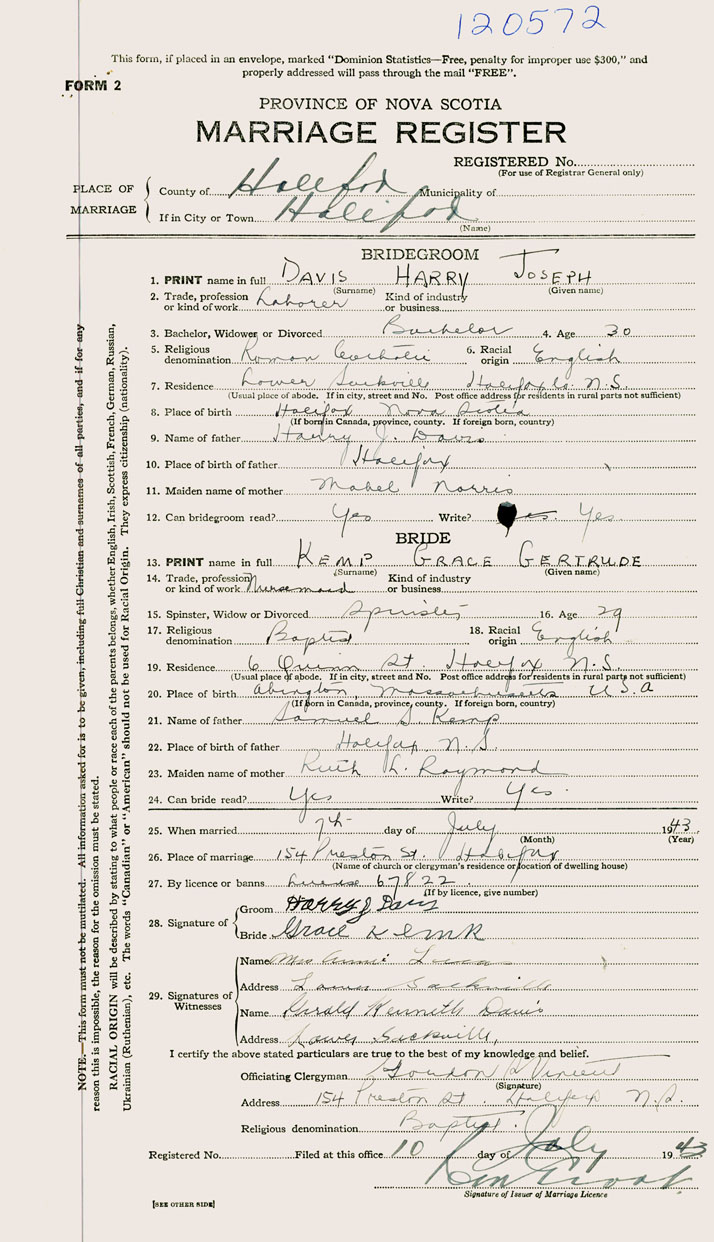 120572
This form, if placed in an envelope, marked "Dominion Statistics—Free, penalty for improper use $300," and
properly addressed will pass through the mail "FREE".
FORM 2
PROVINCE OF NOVA SCOTIA
MARRIAGE REGISTER
REGISTERED No.
(For use of Registrar General only)
PLACE OF MARRIAGE
County of Halifax Municipality of
If in City or Town Halifax
(Name)
BRIDEGROOM
1. PRINT name in full DAVIS HARRY JOSEPH
(Surname) (Given name)
2. Trade, profession or kind of work Laborer Kind of industry or business
3. Bachelor, Widower or Divorced Bachelor 4. Age 30
5. Religious denomination Roman Catholic 6. Racial origin English
7. Residence Lower Sackville Halifax Co. N.S.
(Usual place of abode. If in city, street and No. Post office address for residents in rural parts not sufficient)
8. Place of birth Halifax Nova Scotia
(If born in Canada, province, county. If foreign born, country)
9. Name of father Harry J. Davis
10. Place of birth of father Halifax
11. Maiden name of mother Mabel Norris
12. Can bridegroom read? Yes Write? Yes
BRIDE
13. PRINT name in full KEMP GRACE GERTRUDE
(Surname) (Given name)
14. Trade, profession or kind of work Nursemaid Kind of industry or business
15. Spinster, Widow or Divorced Spinster 16. Age 29
17. Religious denomination Baptist 18. Racial origin English
19. Residence 6 Quinn St. Halifax N.S.
(Usual place of abode. If in city, street and No. Post office address for residents in rural parts not sufficient)
20. Place of birth Abington, Massachusetts U.S.A
(If born in Canada, province, county. If foreign born, country)
21. Name of father Samuel S. Kemp
22. Place of birth of father Halifax N.S.
23. Maiden name of mother Ruth L. Raymond
24. Can bride read? Yes Write? Yes.
25. When married 7th day of July 1943
(Month) (Year)
26. Place of marriage 154 Preston St. Halifax
(Name of church or clergyman's residence or location of dwelling house)
27. By licence or banns License 67822
(If by licence, give number)
28. Signature of
Groom Harry J Davis
Bride Grace Kemp
29. Signatures of Witnesses
Name Mrs Annie
Address Lower Sackville
Name Gerald Kenneth Davis
Address Lower Sackville,
I certify the above stated particulars are true to the best of my knowledge and belief.
Officiating Clergyman Gordon Vincent
(Signature)
Address 154 Preston St. Halifax N.S.
Religious denomination Baptist.
Registered No. Filed at this office 10 day of July 1943
Signature of Issuer of Marriage Licence
[SEE OTHER SIDE]
NOTE.—This form must not be mutilated. All information asked for is to be given, including full Christian and surnames of all parties, and if for any
reason this is impossible, the reason for the omission must be stated.
RACIAL ORIGIN will be described by stating to what people or race each of the parents belongs, whether English, Irish, Scottish, French, German, Russian,
Ukrainian (Ruthenian), etc. The words "Canadian" or "American" should not be used for Racial Origin. They express citizenship (nationality).